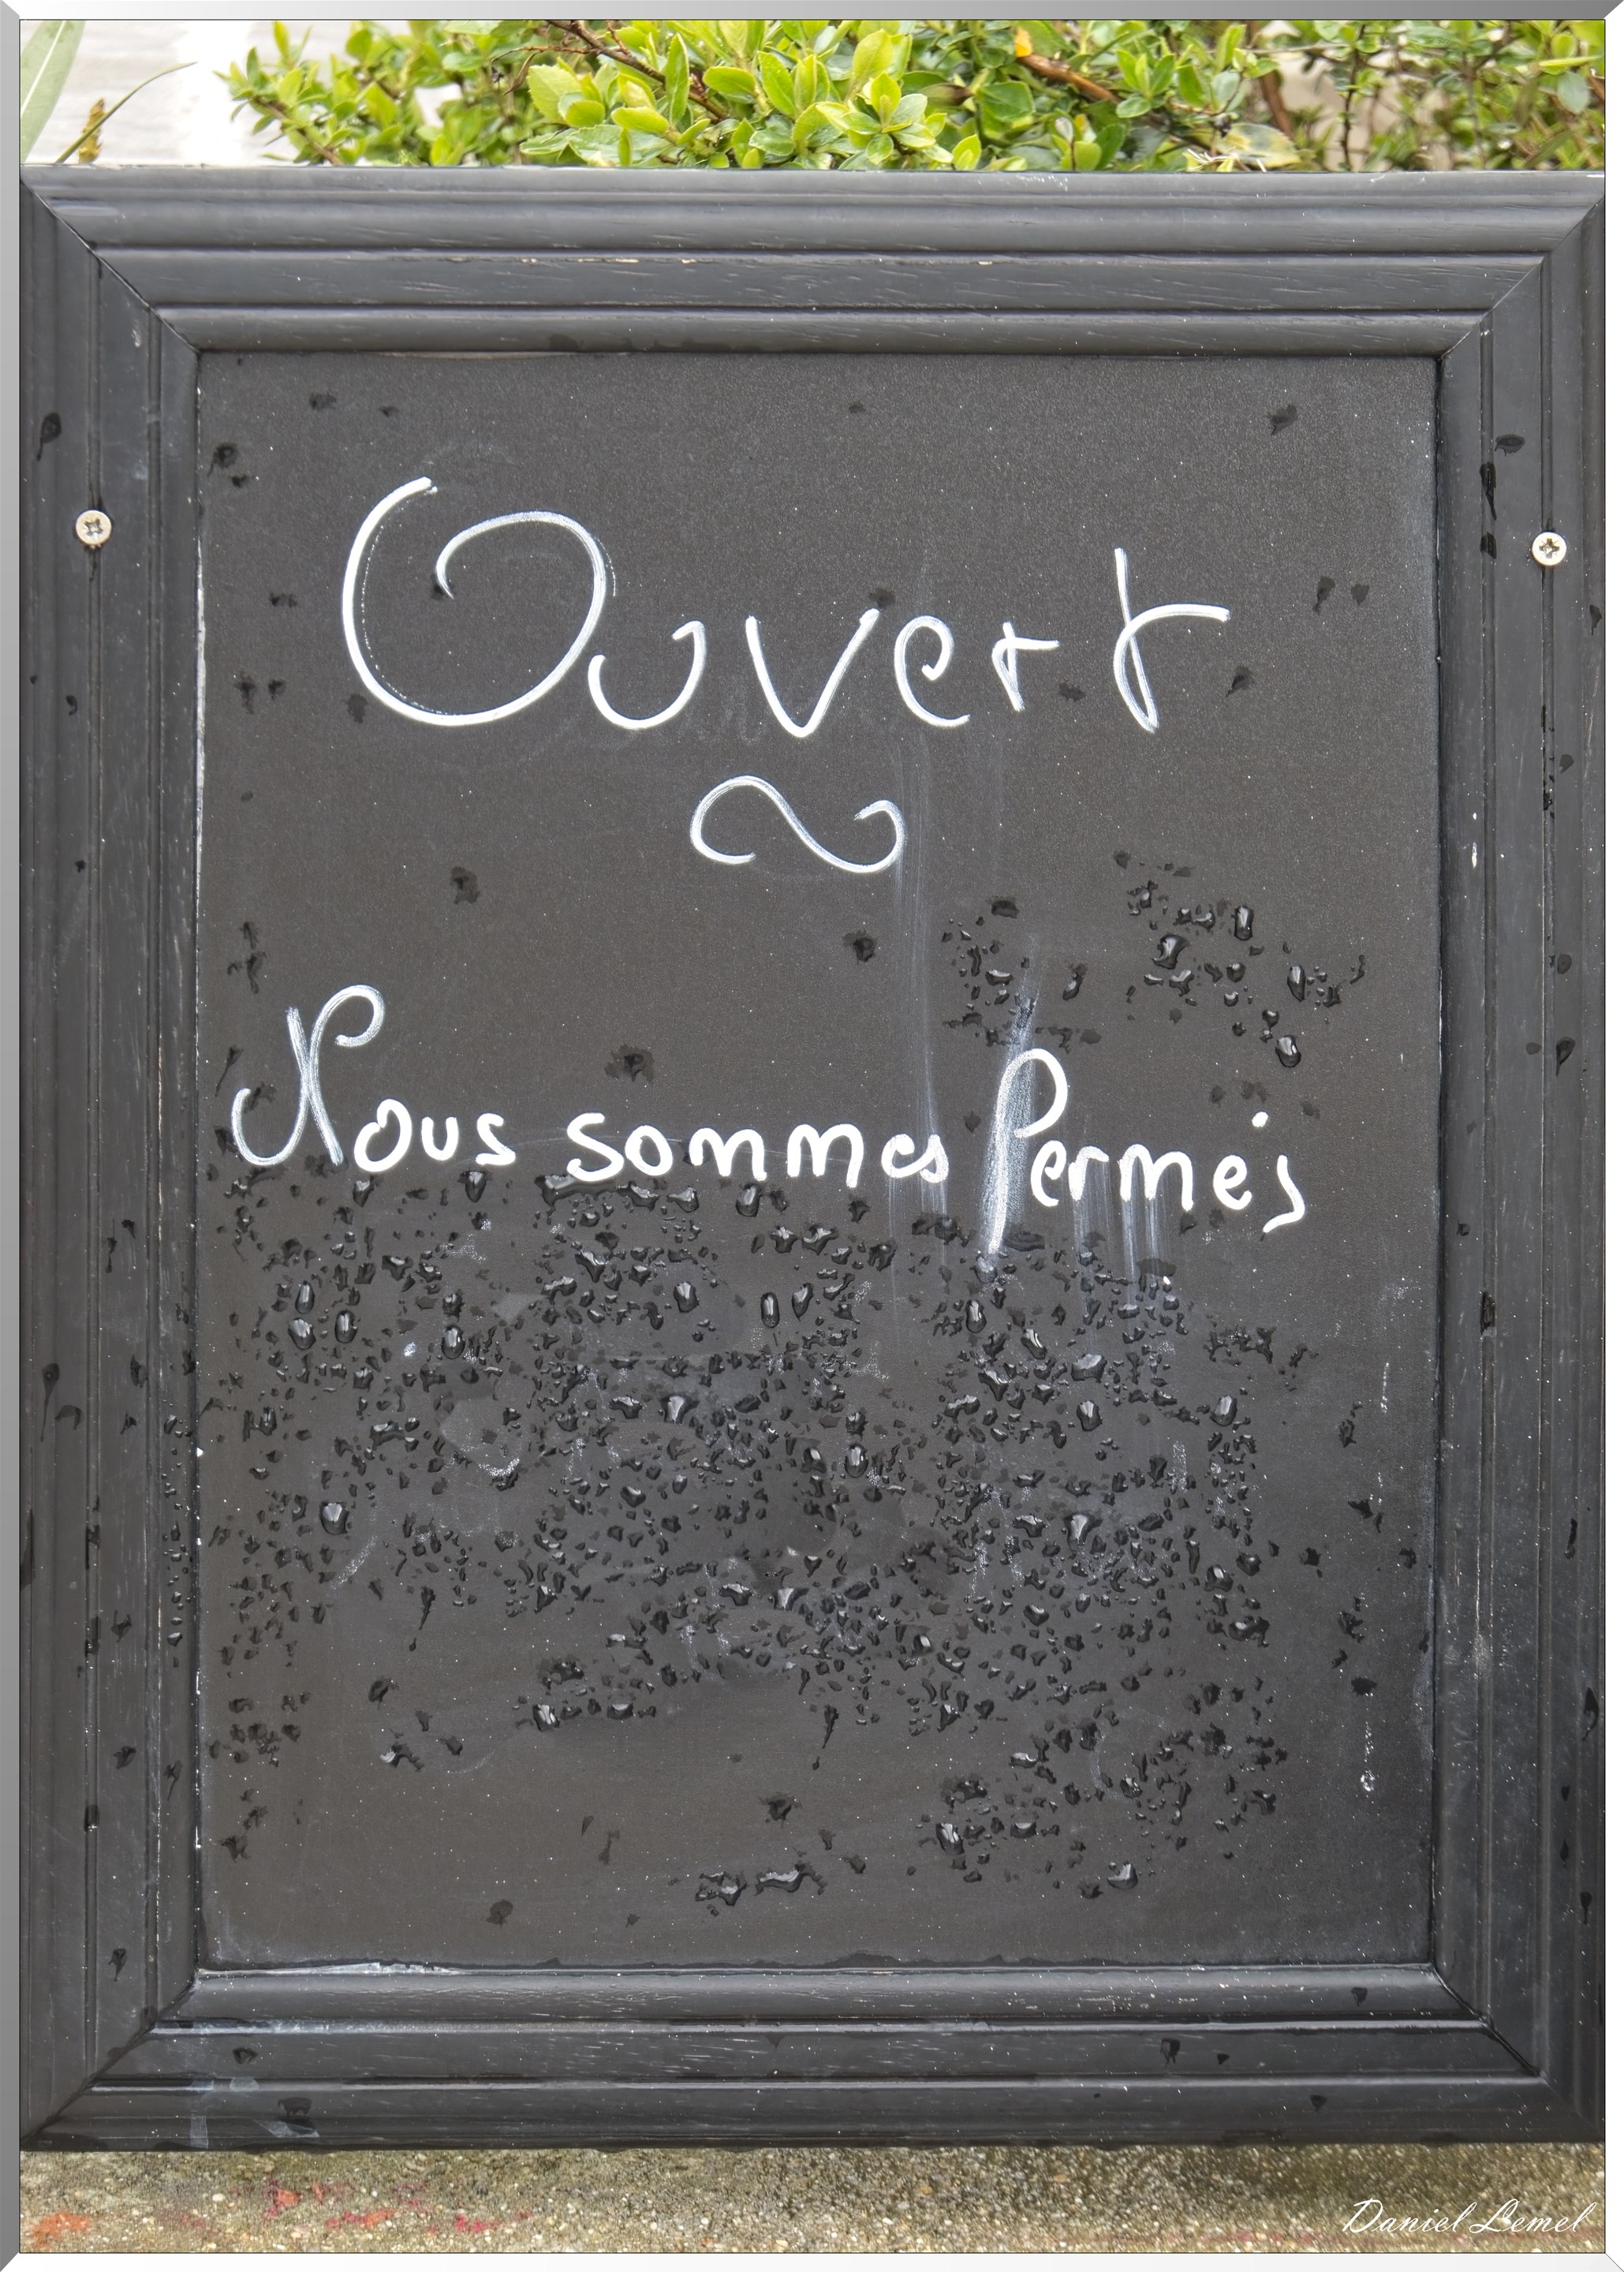 Ouvert
Nous sommes fermés
Daniel Lemel